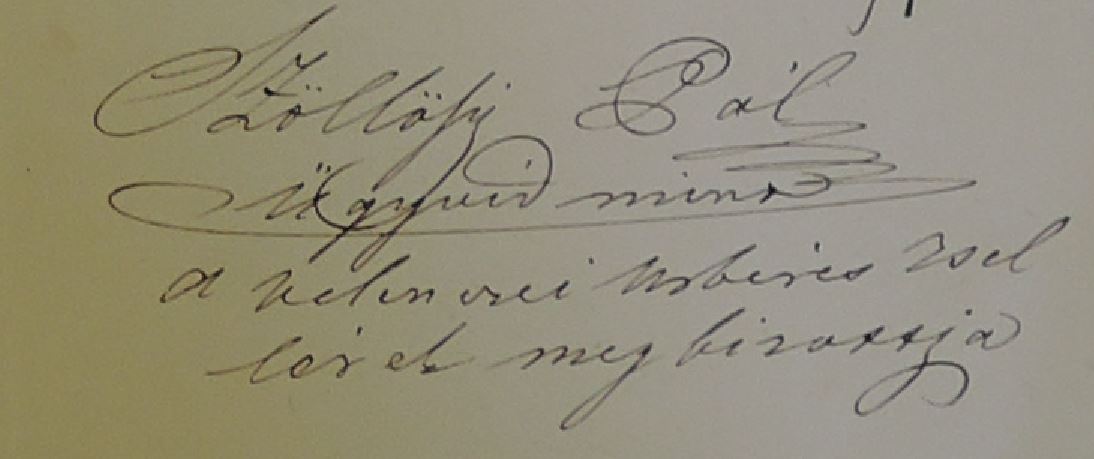 Szöllősy Pál
Ügyvéd mint
a velenczei Urbéres zsel
lérek megbizottja